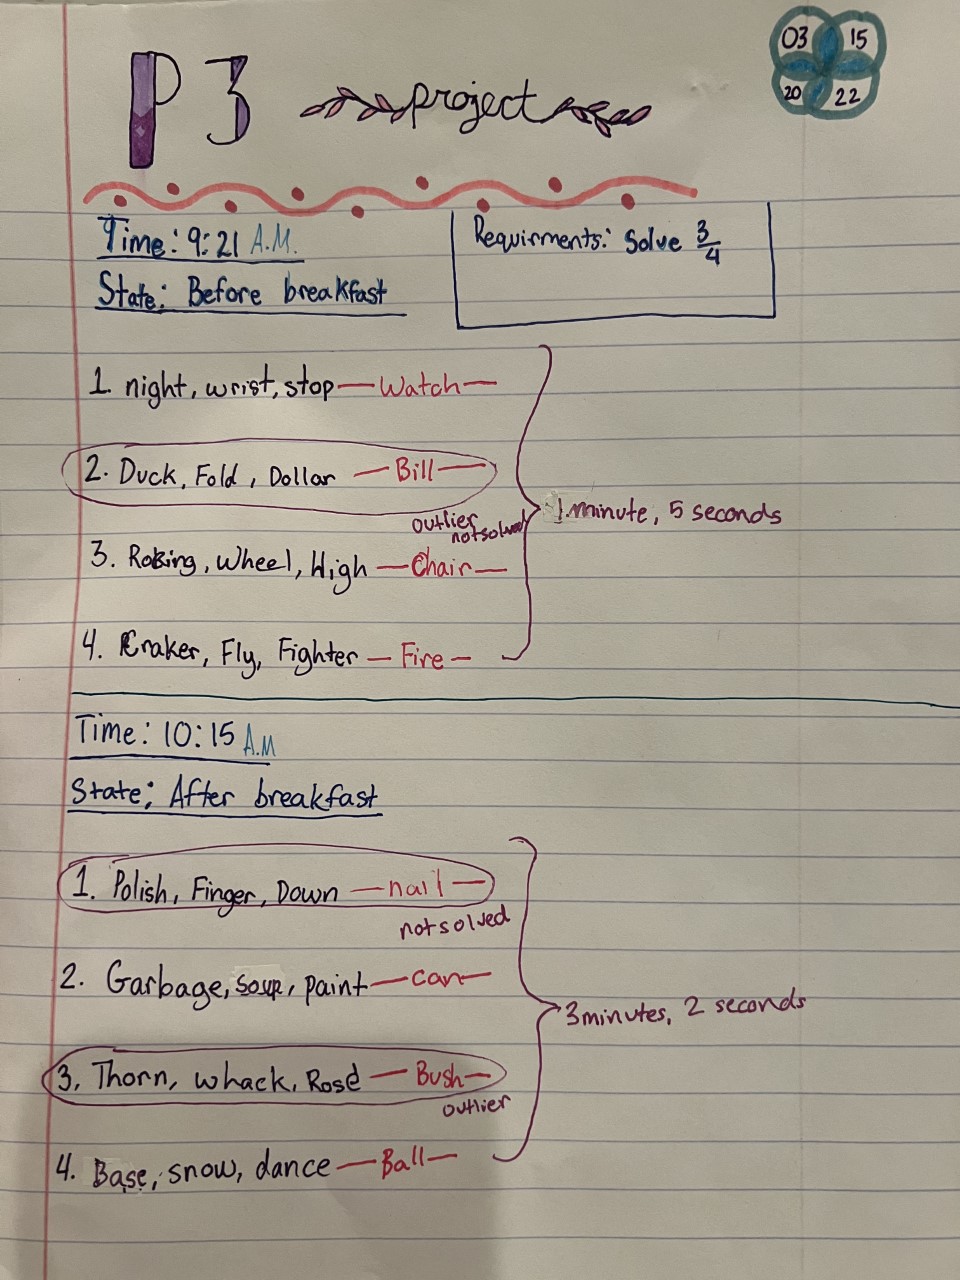 P3 project
03 15
20 22
Time: 9:21 A.M.
State: Before breakfast
Requirments: Solve 3/4
1. night, wrist, stop — Watch —
2. Duck, Fold, Dollar — Bill —
outlier
not solved
1 minute, 5 seconds
3. Rocking, Wheel, High — Chair —
4. Craker, Fly, Fighter — Fire —
Time: 10:15 A.M
State: After breakfast
1. Polish, Finger, Down — nail —
not solved
2. Garbage, soup, paint — can —
3 minutes, 2 seconds
3, Thorn, whack, Rose — Bush —
outlier
4. Base, snow, dance — Ball —